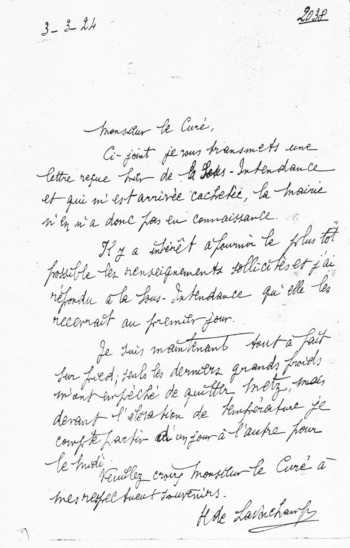 3-3-24
2038
Monsieur le Curé,
Ci-joint je vous transmets une
lettre reçue hier de la Sous-Intendance
et qui m'est arrivée cachetée, la mairie
n'en a donc pas eu connaissance.
Il y a intérêt à fournir le plus tôt
possible les renseignements sollicités et j'ai
répondu à la Sous-Intendance qu'elle les
recevrait au premier jour.
Je suis maintenant tout à fait
sur pied, seuls les derniers grands froids
m'ont empêché de quitter Metz, mais
devant l'élévation de température je
compte partir d'un jour à l'autre pour
le midi.
Veuillez croire Monsieur le Curé à
mes respectueux souvenirs.
H de